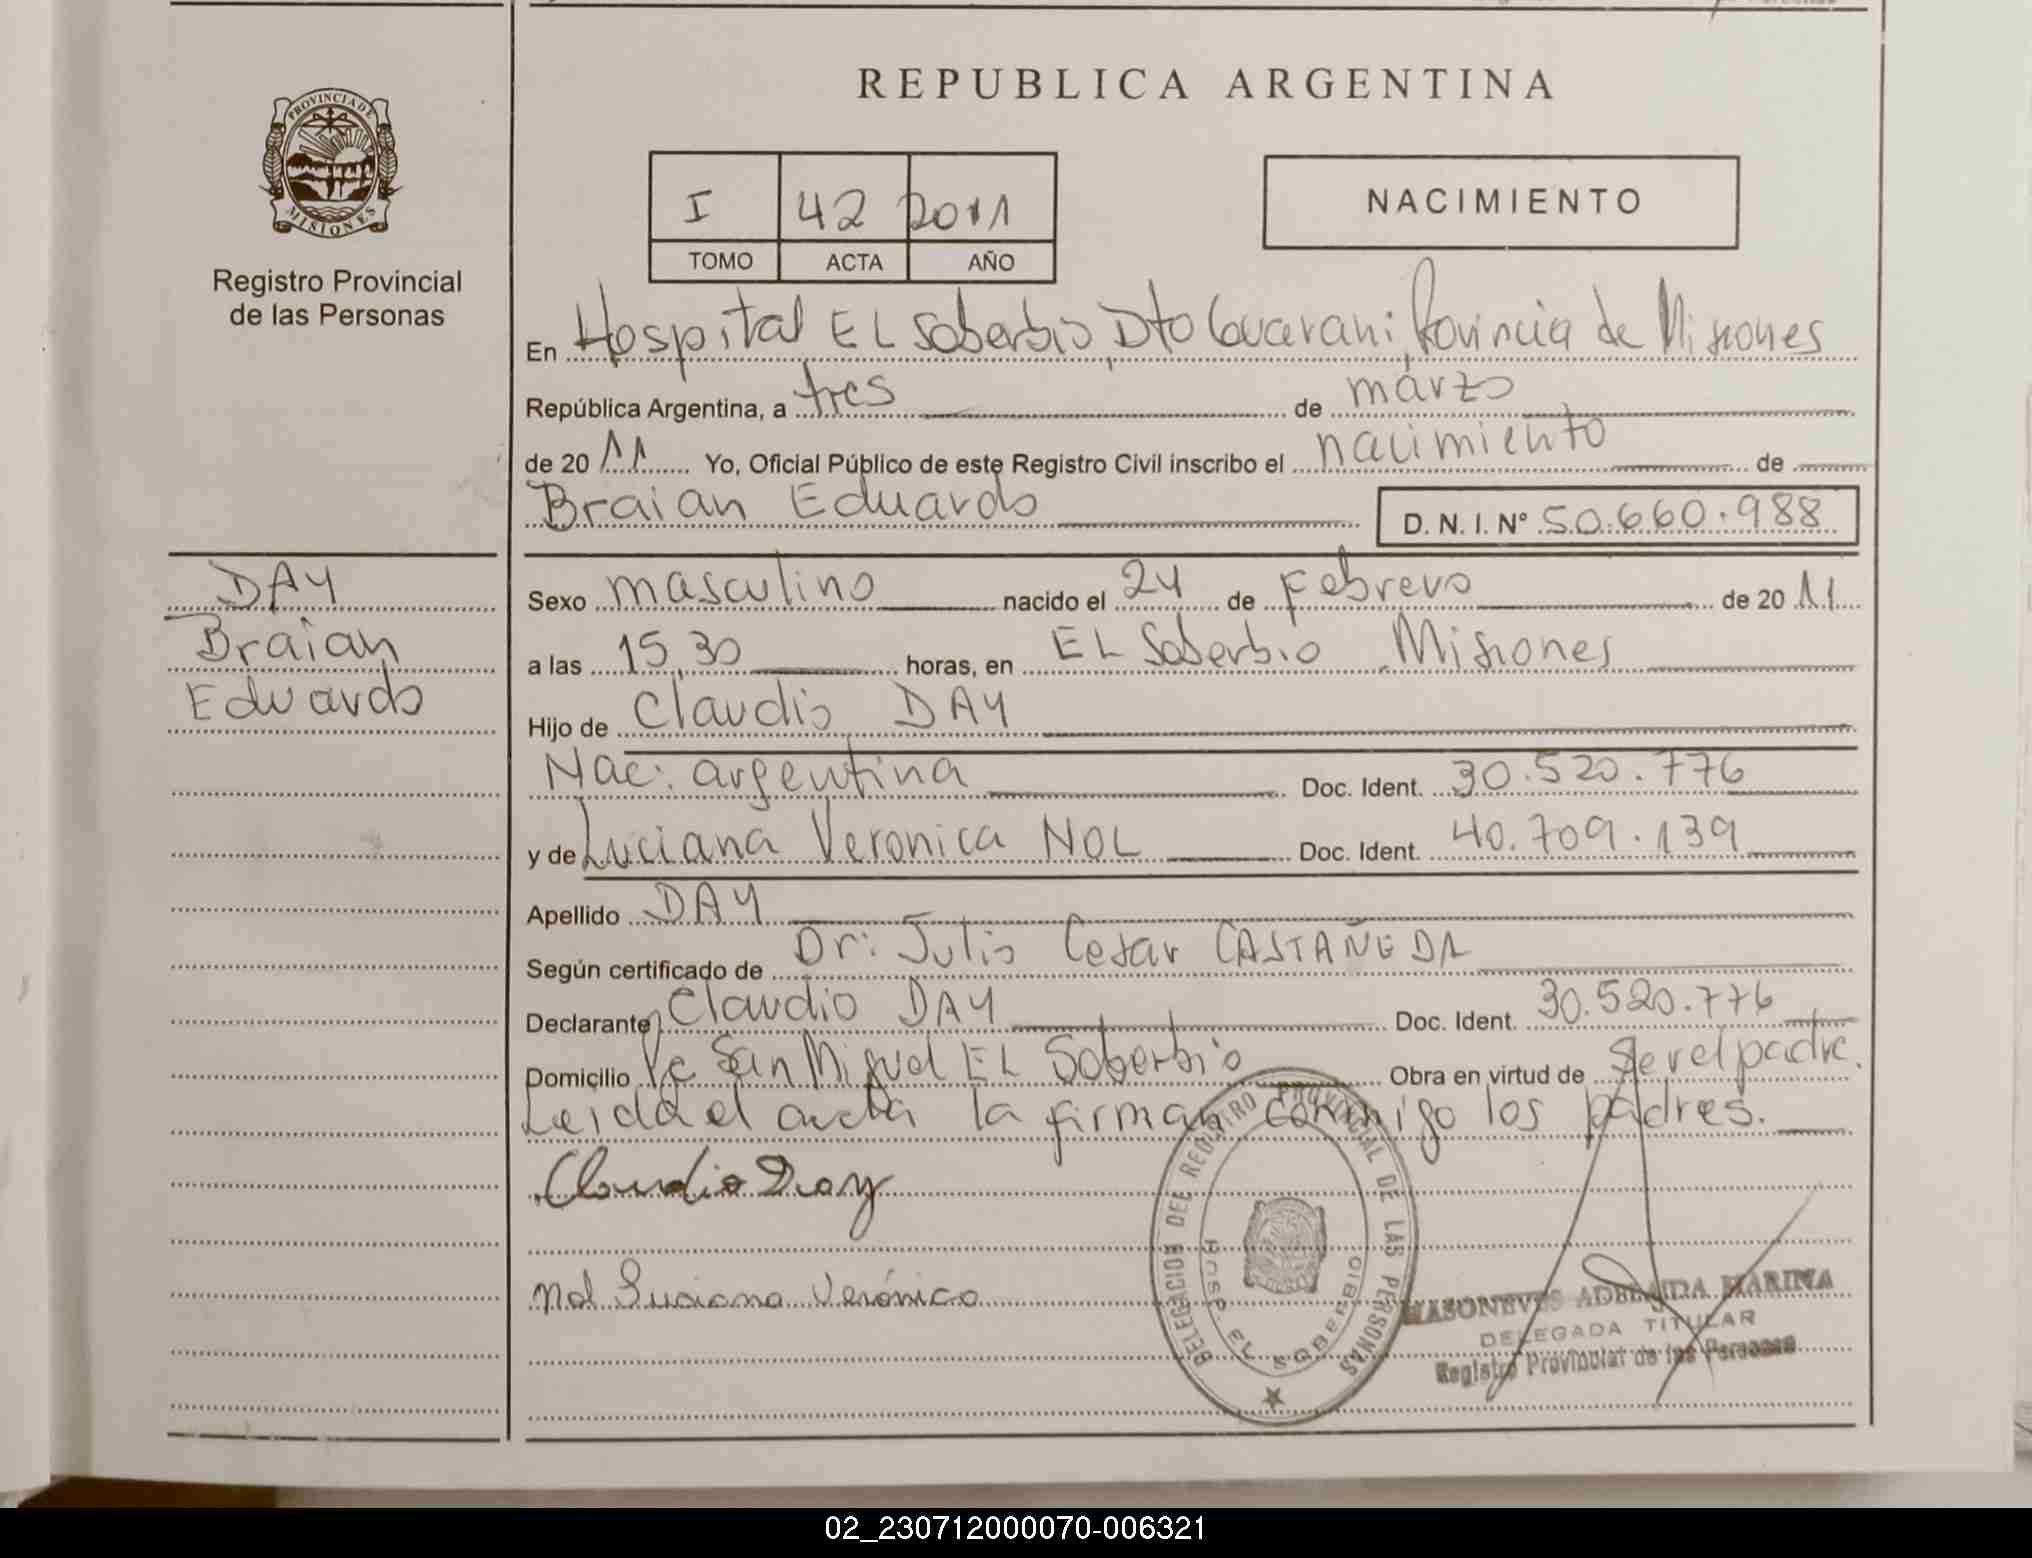 REPUBLICA ARGENTINA
PROVINCIA DE
MISIONES
Registro Provincial
de las Personas
I 42 2011
TOMO ACTA AÑO
NACIMIENTO
En Hospital EL Soberbio, Dto Guarani, Provincia de Misiones
República Argentina, a tres de marzo
de 20 11 Yo, Oficial Público de este Registro Civil inscribo el nacimiento de
Braian Eduardo D. N. I. N° 50.660.988
DAY
Braian
Eduardo
Sexo masculino nacido el 24 de Febrero de 20 11
a las 15,30 horas, en EL Soberbio Misiones
Hijo de Claudio DAY
Nac: argentina Doc. Ident. 30.520.776
y de Luciana Veronica NOL Doc. Ident. 40.709.139
Apellido DAY
Según certificado de Dr: Julio Cesar CASTAÑEDA
Declarante Claudio DAY Doc. Ident. 30.520.776
Domicilio Pe San Miguel EL Soberbio Obra en virtud de ser el padre.
Leida el acta la firman conmigo los padres.
Claudio Day
Nol Luciana Verónica
DELEGACION DEL REGISTRO PROVINCIAL DE LAS PERSONAS
HOSP. EL SOBERBIO
MASONEVES ADELAIDA MARINA
DELEGADA TITULAR
Registro Provincial de las Personas
02_230712000070-006321